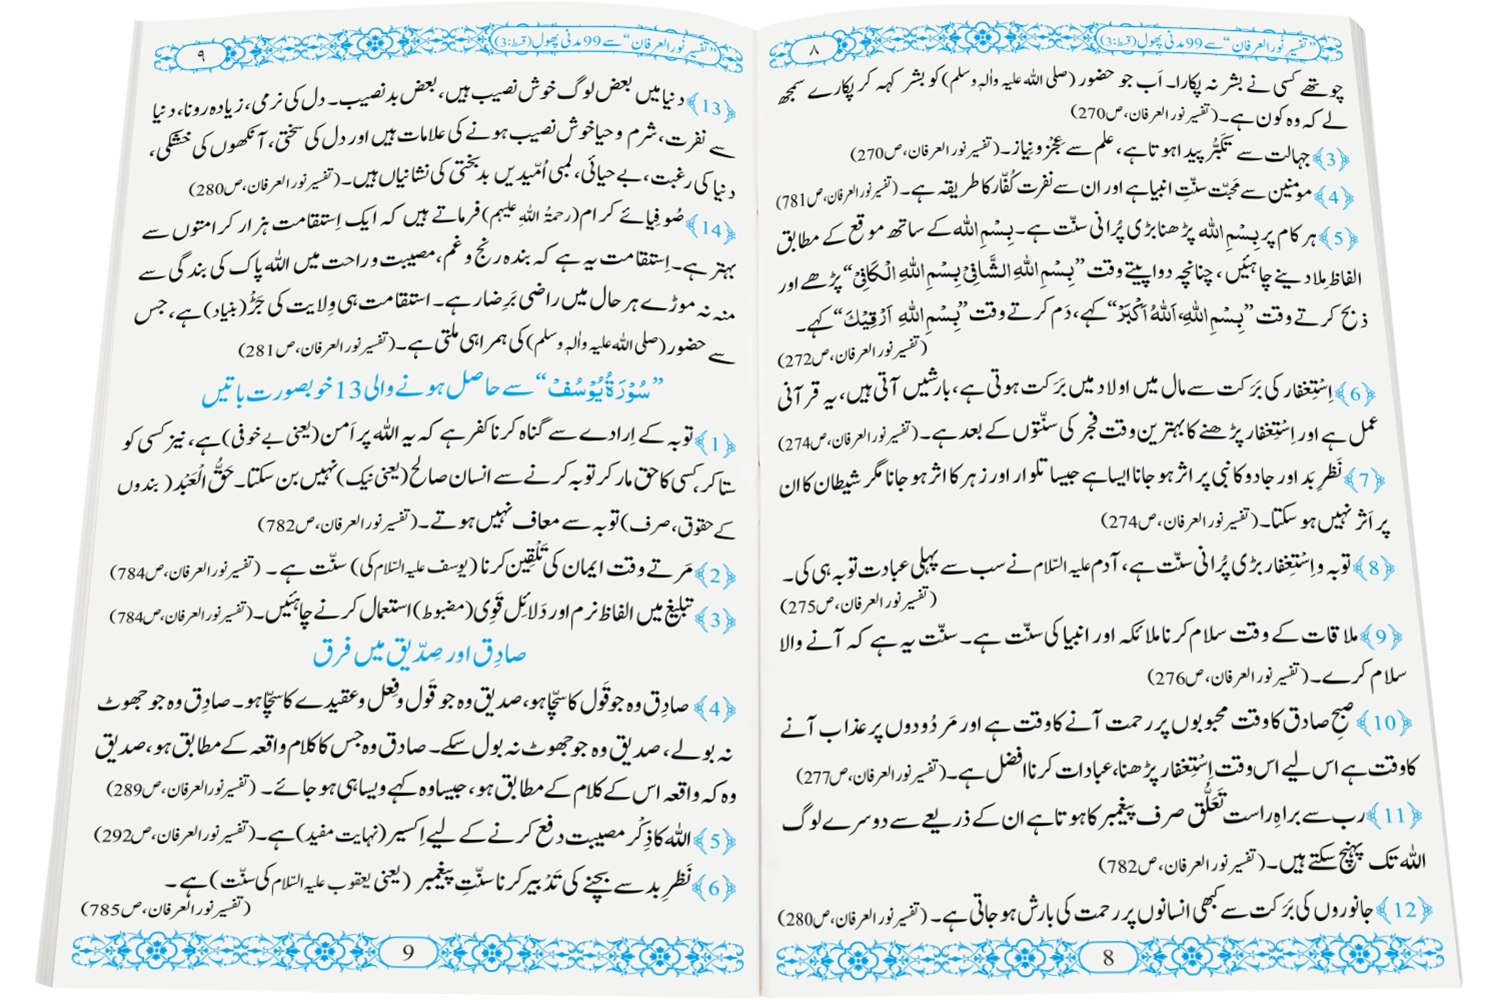 ”تفسیر نورالعرفان“ سے 99 مدنی پھول (قسط:3)
۸
چوتھے کسی نے بشر نہ پکارا۔ اَب جو حضور (صلی اللہ علیہ واٰلہٖ وسلم) کو بشر کہہ کر پکارے سمجھ
لے کہ وہ کون ہے۔ (تفسیر نورالعرفان،ص270)
﴿3﴾ جہالت سے تکبُّر پیدا ہوتا ہے، علم سے عِجْز و نیاز۔ (تفسیر نورالعرفان،ص270)
﴿4﴾ مؤمنین سے مَحبّت سنّتِ انبیا ہے اور ان سے نفرت کُفّار کا طریقہ ہے۔ (تفسیر نورالعرفان،ص781)
﴿5﴾ ہر کام پر بِسْمِ اللہ پڑھنا بڑی پُرانی سنّت ہے۔ بِسْمِ اللہ کے ساتھ موقع کے مطابق
الفاظ مِلا دینے چاہئیں، چنانچہ دوا پیتے وقت ”بِسْمِ اللهِ الشَّافِیْ بِسْمِ اللهِ الْكَافِیْ“ پڑھے اور
ذبح کرتے وقت ”بِسْمِ اللهِ، اَللهُ اَكْبَرْ“ کہے، دَم کرتے وقت ”بِسْمِ اللهِ اَرْقِیْكَ“ کہے۔
(تفسیر نورالعرفان،ص272)
﴿6﴾ اِسْتِغفار کی بَرَکت سے مال میں اولاد میں بَرَکت ہوتی ہے، بارشیں آتی ہیں، یہ قرآنی
عمل ہے اور اِسْتِغفار پڑھنے کا بہترین وقت فجر کی سنّتوں کے بعد ہے۔ (تفسیر نورالعرفان،ص274)
﴿7﴾ نَظَرِ بَد اور جادو کا نبی پر اثر ہو جانا ایسا ہے جیسا تلوار اور زہر کا اثر ہو جانا مگر شیطان کا ان
پر اَثَر نہیں ہو سکتا۔ (تفسیر نورالعرفان،ص274)
﴿8﴾ توبہ و اِسْتِغفار بڑی پُرانی سنّت ہے، آدم علیہ السّلام نے سب سے پہلی عبادت توبہ ہی کی۔
(تفسیر نورالعرفان،ص275)
﴿9﴾ ملاقات کے وقت سلام کرنا ملائکہ اور انبیا کی سنّت ہے۔ سنّت یہ ہے کہ آنے والا
سلام کرے۔ (تفسیر نورالعرفان،ص276)
﴿10﴾ صُبحِ صادق کا وقت محبوبوں پر رحمت آنے کا وقت ہے اور مَردُودوں پر عذاب آنے
کا وقت ہے اس لیے اس وقت اِسْتِغفار پڑھنا، عبادات کرنا افضل ہے۔ (تفسیر نورالعرفان،ص277)
﴿11﴾ رب سے براہِ راست تَعَلُّق صرف پیغمبر کا ہوتا ہے ان کے ذریعے سے دوسرے لوگ
اللہ تک پہنچ سکتے ہیں۔ (تفسیر نورالعرفان،ص782)
﴿12﴾ جانوروں کی بَرَکت سے کبھی انسانوں پر رحمت کی بارش ہو جاتی ہے۔ (تفسیر نورالعرفان،ص280)
8
”تفسیر نورالعرفان“ سے 99 مدنی پھول (قسط:3)
۹
﴿13﴾ دنیا میں بعض لوگ خوش نصیب ہیں، بعض بدنصیب۔ دل کی نرمی، زیادہ رونا، دنیا
سے نفرت، شرم و حیا خوش نصیب ہونے کی علامات ہیں اور دل کی سختی، آنکھوں کی خشکی،
دنیا کی رغبت، بے حیائی، لمبی اُمّیدیں بدبختی کی نشانیاں ہیں۔ (تفسیر نورالعرفان،ص280)
﴿14﴾ صُوفیائے کرام (رحمۃُ اللہِ علیہم) فرماتے ہیں کہ ایک اِستقامت ہزار کرامتوں سے
بہتر ہے۔ اِستقامت یہ ہے کہ بندہ رنج و غم، مصیبت و راحت میں اللہ پاک کی بندگی سے
منہ نہ موڑے ہر حال میں راضی بَرِضا رہے۔ استقامت ہی وِلایت کی جَڑ (بنیاد) ہے، جس
سے حضور (صلی اللہ علیہ واٰلہٖ وسلم) کی ہمراہی ملتی ہے۔ (تفسیر نورالعرفان،ص281)
”سُوْرَۃُ یُوْسُف“ سے حاصل ہونے والی 13 خوبصورت باتیں
﴿1﴾ توبہ کے اِرادے سے گناہ کرنا کفر ہے کہ یہ اللہ پر اَمن (یعنی بے خوفی) ہے، نیز کسی کو
ستا کر، کسی کا حق مار کر توبہ کرنے سے انسان صالح (یعنی نیک) نہیں بن سکتا۔ حَقُّ الْعَبْد (بندوں
کے حقوق، صرف) توبہ سے معاف نہیں ہوتے۔ (تفسیر نورالعرفان،ص782)
﴿2﴾ مَرتے وقت ایمان کی تَلْقِین کرنا (یوسف علیہ السّلام کی) سنّت ہے۔ (تفسیر نورالعرفان،ص784)
﴿3﴾ تبلیغ میں الفاظ نرم اور دَلائِل قَوِی (مضبوط) استعمال کرنے چاہئیں۔ (تفسیر نورالعرفان،ص784)
صادِق اور صِدّیق میں فرق
﴿4﴾ صادِق وہ جو قَول کا سچّا ہو، صدیق وہ جو قَول و فِعل و عقیدے کا سچّا ہو۔ صادِق وہ جو جھوٹ
نہ بولے، صدیق وہ جو جھوٹ نہ بول سکے۔ صادق وہ جس کا کلام واقعہ کے مطابق ہو، صدیق
وہ کہ واقعہ اس کے کلام کے مطابق ہو، جیسا وہ کہے ویسا ہی ہو جائے۔ (تفسیر نورالعرفان،ص289)
﴿5﴾ اللہ کا ذِکْر مصیبت دفع کرنے کے لیے اِکسیر (نہایت مفید) ہے۔ (تفسیر نورالعرفان،ص292)
﴿6﴾ نَظَرِ بد سے بچنے کی تَدْبیر کرنا سنّتِ پیغمبر (یعنی یعقوب علیہ السّلام کی سنّت) ہے۔
(تفسیر نورالعرفان،ص785)
9